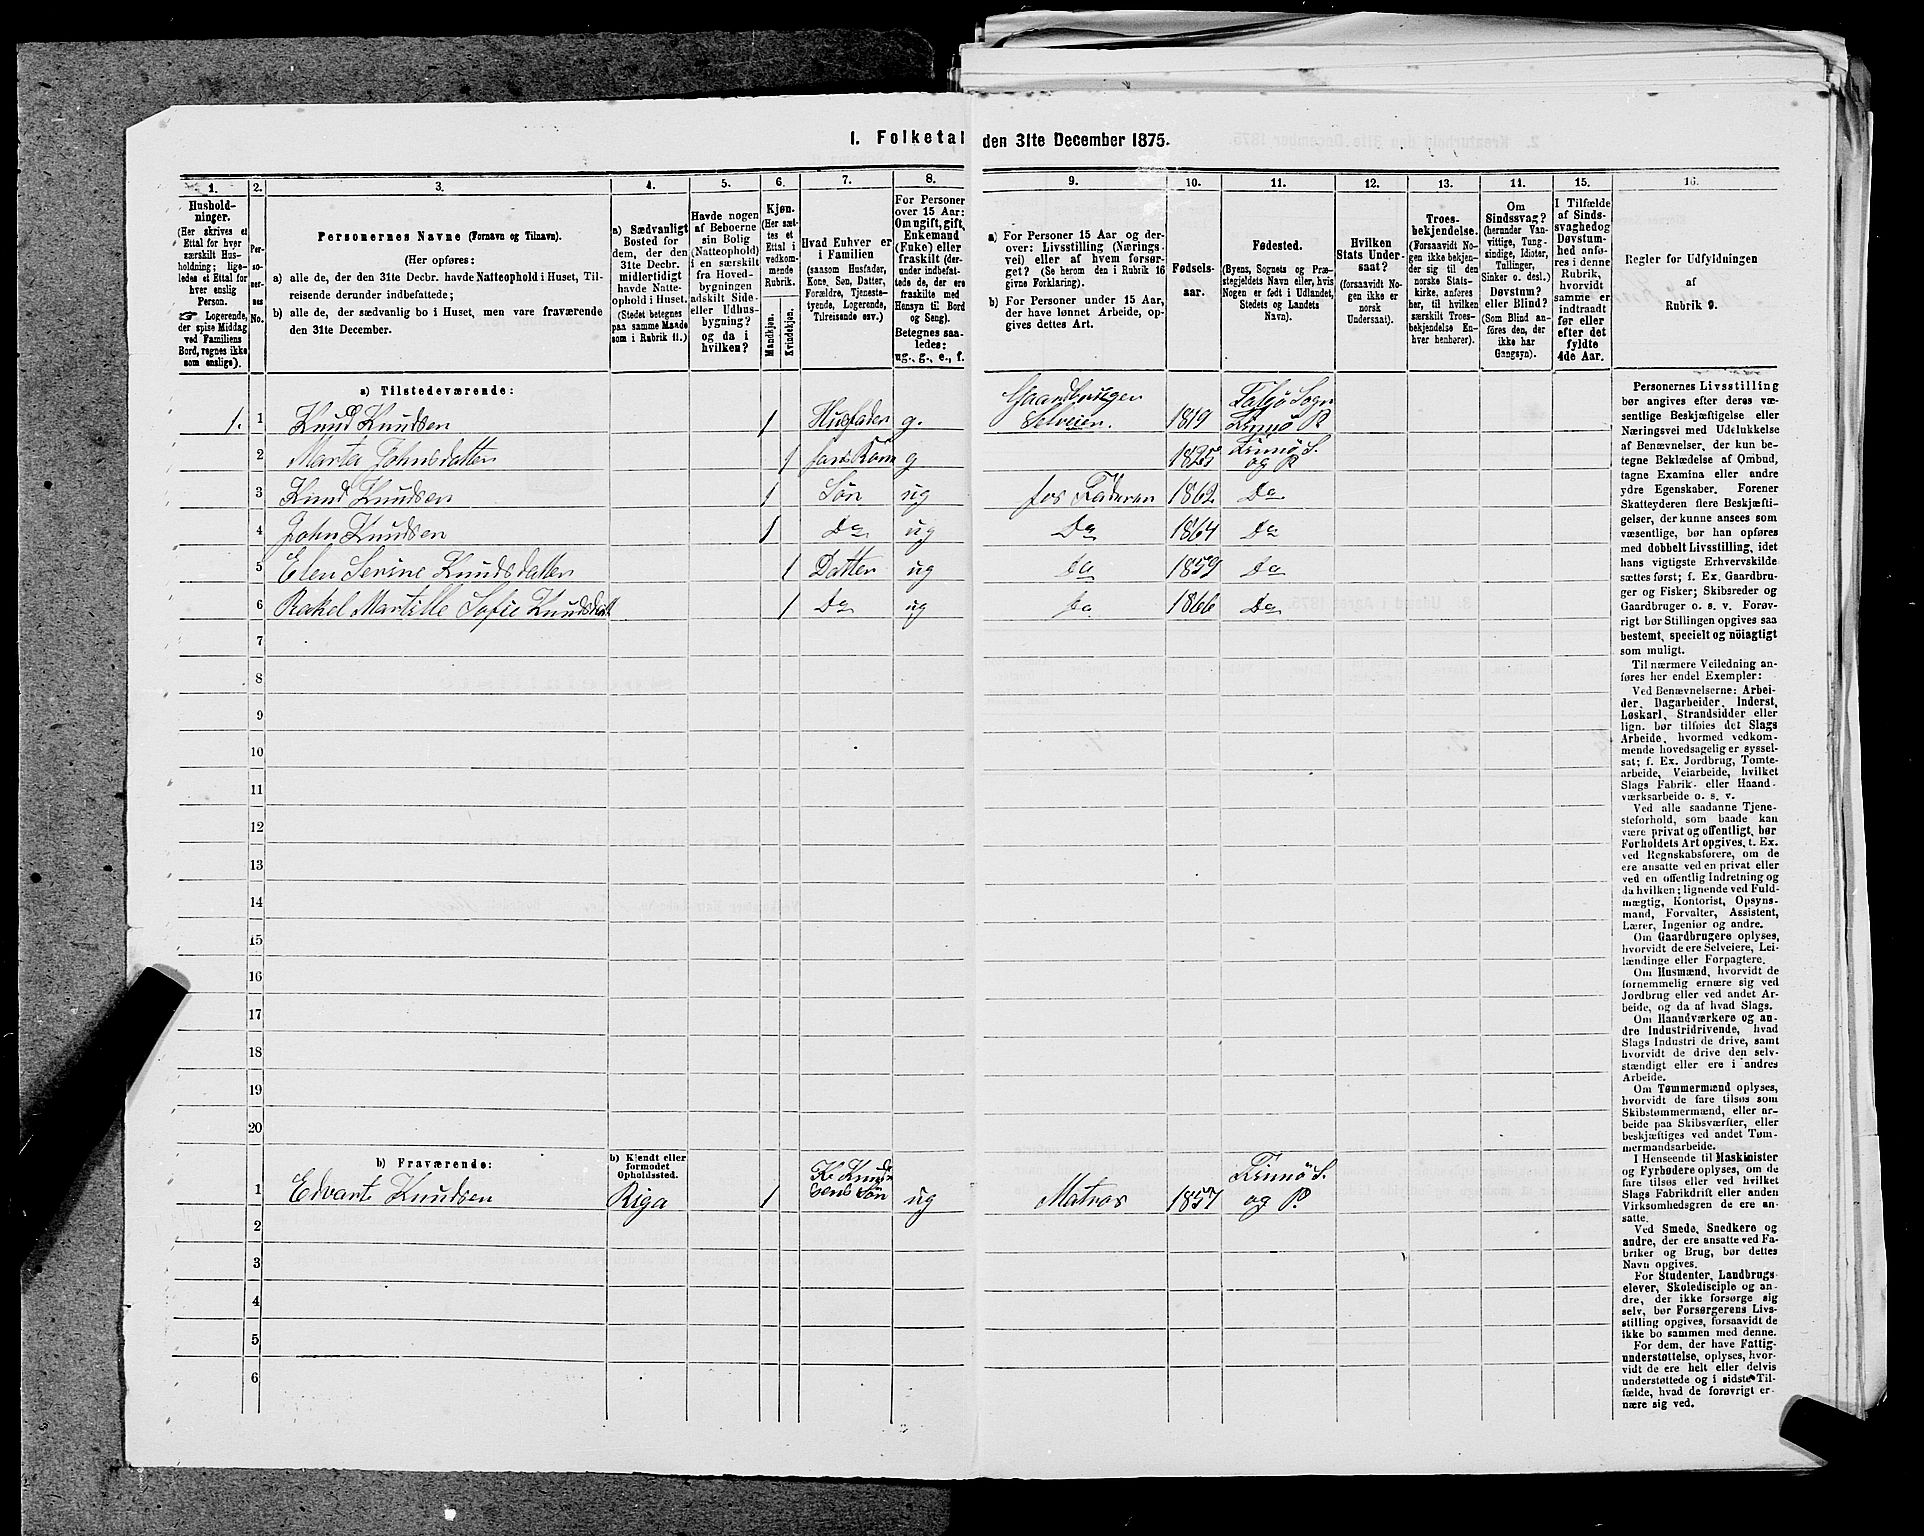 1. Folketal den 31te December 1875.
1.
Hushold-
ninger.
(Her skrives et
Ettal for hver
særskilt Hus-
holdning; lige-
ledes et Ettal for
hver enslig
Person.
☞ Logerende,
der spise Middag
ved Familiens
Bord, regnes ikke
som enslige).
2.
Per-
so-
ner-
nes
No.
3.
Personernes Navne (Fornavn og Tilnavn).
(Her opføres:
a) alle de, der den 31te Decbr. havde Natteophold i Huset, Til-
reisende derunder indbefattede;
b) alle de, der sædvanlig bo i Huset, men vare fraværende
den 31te December.
4.
a) Sædvanligt
Bosted for
dem, der den
31te Decbr.
midlertidigt
havde Natte-
ophold i Huset.
(Stedet betegnes
paa samme Maade
som i Rubrik 11.)
5.
Havde nogen
af Beboerne
sin Bolig
(Natteophold)
i en særskilt
fra Hoved-
bygningen
adskilt Side-
eller Udhus-
bygning?
og da i
hvilken?
6.
Kjøn.
(Her sæt-
tes et
Ettal i
vedkom-
mende
Rubrik.
Mandkjøn.
Kvindekjøn.
7.
Hvad Enhver er
i Familien
(saasom Husfader,
Kone, Søn, Datter,
Forældre, Tjeneste-
tyende, Logerende,
Tilreisende osv.)
8.
For Personer
over 15 Aar:
Om ugift, gift,
Enkemand
(Enke) eller
fraskilt (der-
under indbefat-
tede de, der ere
fraskilte med
Hensyn til Bord
og Seng).
Betegnes saa-
ledes:
ug., g., e., f.
9.
a) For Personer 15 Aar og der-
over: Livsstilling (Nærings-
vei) eller af hvem forsør-
get? (Se herom den i Rubrik 16
givne Forklaring).
b) For Personer under 15 Aar,
der have lønnet Arbeide, op-
gives dettes Art.
10.
Fødsels-
aar.
11.
Fødested.
(Byens, Sognets og Præ-
stegjeldets Navn eller, hvis
Nogen er født i Udlandet,
Stedets og Landets
Navn).
12.
Hvilken
Stats Under-
saat?
(forsaavidt No-
gen ikke er
norsk
Undersaat).
13.
Troes-
bekjendelse.
(Forsaavidt No-
gen ikke bekjen-
der sig til den
norske Stats-
kirke, anføres
her, til hvilken
særskilt Troes-
bekjendelse En-
hver henhører).
14.
Om
Sindssvag?
(herunder Van-
vittige, Tung-
sindige, Idioter,
Tullinger,
Sinker o. desl.)
Døvstum?
eller Blind?
(Som Blind an-
føres den, der
ikke har
Gangsyn).
15.
I Tilfælde
af Sinds-
svaghed og
Døvstum-
hed anfø-
res i denne
Rubrik,
hvorvidt
samme er
indtraadt
før eller
efter det
fyldte
4de Aar.
16.
Regler for Udfyldningen
af
Rubrik 9.
a) Tilstedeværende:
1. 1 Knud Knudsen 1 Husfader g. Gaardbruger Selveier. 1819 Talgø Sogn Finnø P
2 Marta Johnsdatter 1 hans Kone g 1825 Finnø S. og P
3 Knud Knudsen 1 Søn ug hos Faderen 1862 Do
4 John Knudsen 1 Do ug Do 1864 Do
5 Elen Serine Knudsdatter 1 Datter ug do 1859 Do
6 Rakel Martille Sofie Knudsdatt 1 Do ug do. 1866 Do
7
8
9
10
11
12
13
14
15
16
17
18
19
20
b) Fraværende:
b) Kjendt eller
formodet
Opholdssted.
1 Edvart Knudsen Riga 1 K Knud sens Søn ug Matros 1857 Finnø S. og P.
2
3
4
5
6
Personernes Livsstilling
bør angives efter deres væ-
sentlige Beskjæftigelse eller
Næringsvei med Udelukkelse
af Benævnelser, der kun be-
tegne Beklædelse af Ombud,
tagne Examina eller andre
ydre Egenskaber. Forener
Skatteyderen flere Beskjæfti-
gelser, der kunne ansees som
væsentlige, bør han opføres
med dobbelt Livsstilling, idet
hans vigtigste Erhvervskilde
sættes først; f. Ex. Gaardbru-
ger og Fisker; Skibsreder og
Gaardbruger o. s. v. Forøv-
rigt bør Stillingen opgives saa
bestemt, specielt og nöiagtigt
som muligt.
Til nærmere Veiledning an-
føres her endel Exempler:
Ved Benævnelserne: Arbei-
der, Dagarbeider, Inderst,
Løskarl, Strandsidder eller
lign. bør tilføies det Slags
Arbeide, hvormed vedkom-
mende hovedsagelig er syssel-
sat; f. Ex. Jordbrug, Tomte-
arbeide, Veiarbeide, hvilket
Slags Fabrik- eller Haand-
værksarbeide o. s. v.
Ved alle saadanne Tjene-
steforhold, som baade kan
være privat og offentligt, bør
Forholdets Art opgives, t. Ex.
ved Regnskabsførere, om de
ere ansatte ved en privat eller
ved en offentlig Indretning og
da hvilken; lignende ved Fuld-
mægtig, Kontorist, Opsyns-
mand, Forvalter, Assistent,
Lærer, Ingeniør og andre.
Om Gaardbrugere oplyses,
hvorvidt de ere Selveiere, Lei-
lændinge eller Forpagtere.
Om Husmænd, hvorvidt de
fornemmelig ernære sig ved
Jordbrug eller ved andet Ar-
beide, og da af hvad Slags.
Om Haandværkere og an-
dre Industridrivende, hvad
Slags Industri de drive, samt
hvorvidt de drive den selv-
stændigt eller ere i andres
Arbeide.
Om Tømmermænd oplyses,
hvorvidt de fare tilsøs som
Skibstømmermænd, eller ar-
beide paa Skibsværfter, eller
beskjæftiges ved andet Tøm-
mermandsarbeide.
I Henseende til Maskinister
og Fyrbødere oplyses, om de
fare tilsøs eller ved hvilket
Slags Fabrikdrift eller anden
Virksomhedsgren de ere an-
satte.
Ved Smede, Snedkere og
andre, der ere ansatte ved Fa-
briker og Brug, bør dettes
Navn opgives.
For Studenter, Landbrugs-
elever, Skoledisciple og an-
dre, der ikke forsørge sig
selv, bør Forsørgerens Livs-
stilling opgives, forsaavidt de
ikke bo sammen med denne.
For dem, der have Fattig-
understøttelse, oplyses, hvor-
vidt de ere helt eller delvis
understøttede og i sidste Til-
fælde, hvad de forøvrigt er-
nære sig ved.